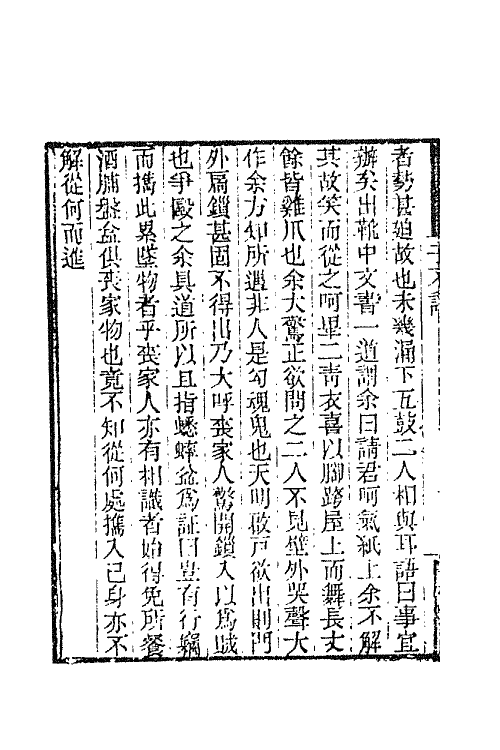 子不語
者勢甚廹故也未幾漏下五鼓二人相與耳語曰事宜
辦矣出靴中文書一道謂余曰請君呵氣紙上余不解
其故笑而從之呵畢二青衣喜以腳跨屋上而舞長丈
餘皆雞爪也余大驚正欲問之二人不見壁外哭聲大
作余方知所遇非人是勾魂鬼也天明啟戸欲出則門
外扃鎖甚固不得出乃大呼喪家人驚開鎖入以爲賊
也爭毆之余具道所以且指蟋蟀盆爲証曰豈有行竊
而攜此累墜物者乎喪家人亦有相識者始得免所餐
酒脯盤盆俱喪家物也竟不知從何處攜入己身亦不
解從何而進